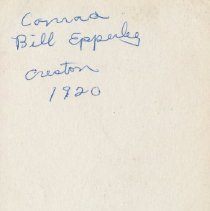 Conrad
Bill Epperley
Creston
1920